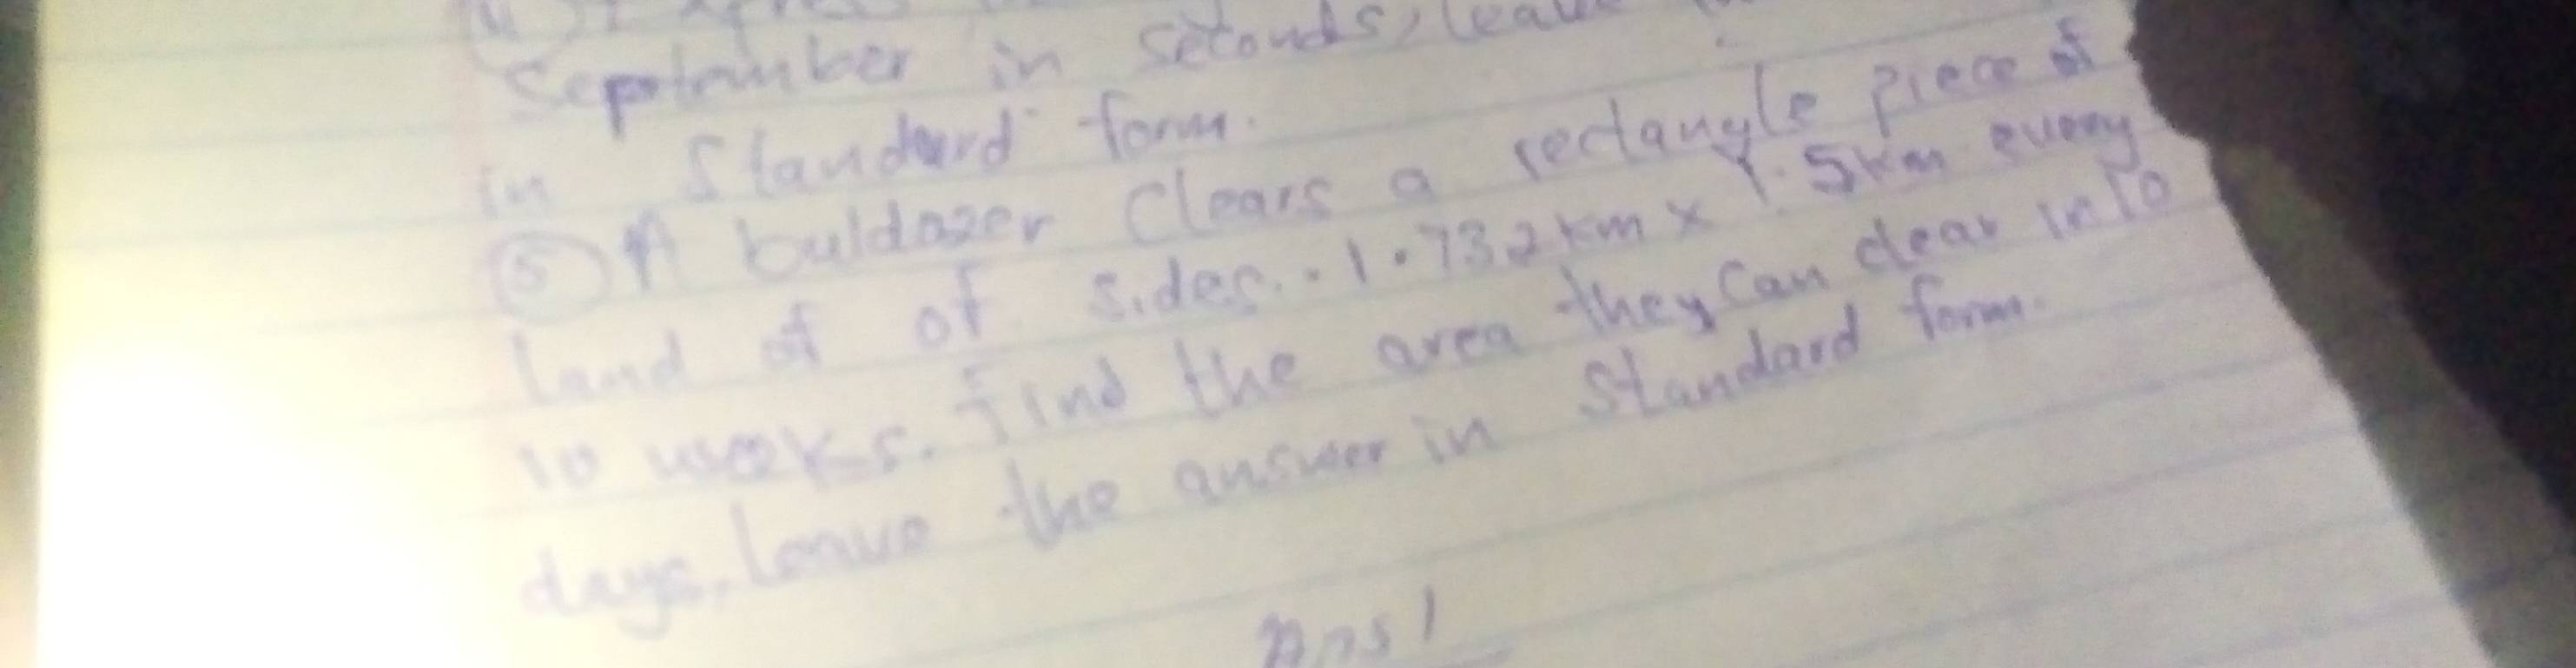 September in seconds, leave
in Standard form.
⑤ A buldozer Clears a rectangle piece of
land of of sides. 1.732km x 1.5km every
10 weeks. Find the area they Can clear in 10
days. Leave the answer in Standard form.
Ans /